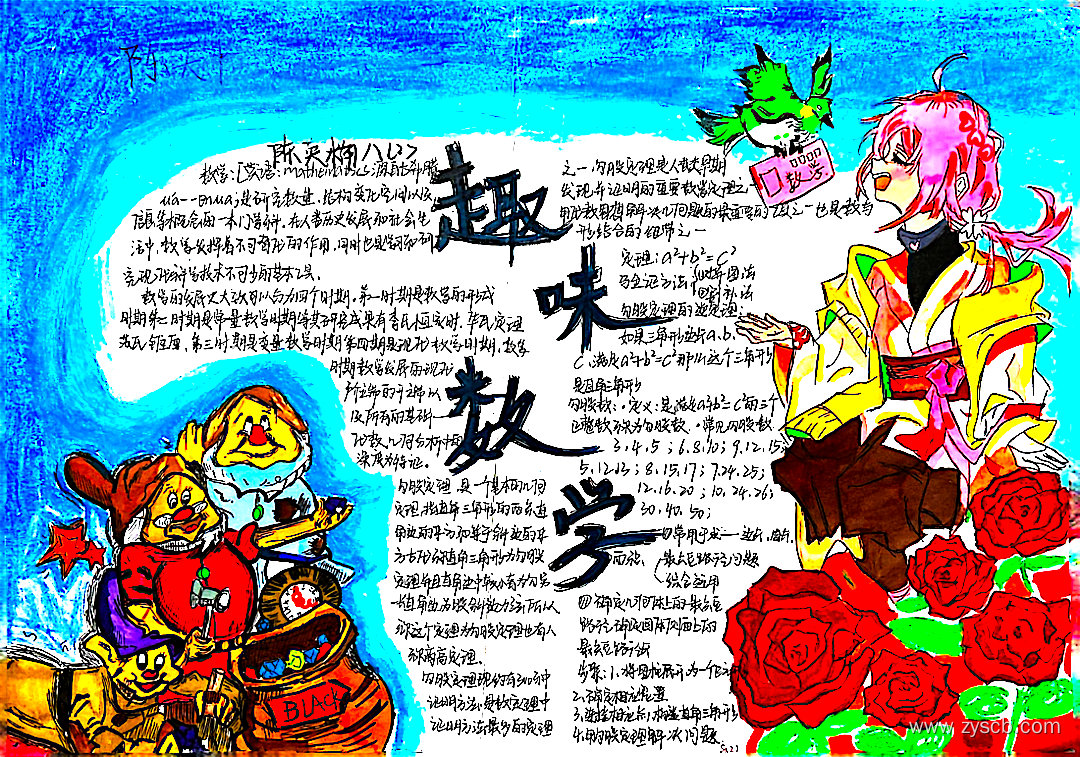 趣味数学
陈英楠八(1)
数学:[英语:mathematics,源自古希腊
ma--ema;是研究数量、结构变化空间以及
信息等概念的一门学科,在人类历史发展和社会生
活中,数学发挥着不可替代的作用,同时也是学习和研
究现代科学技术不可少的基本工具。
数学的发展史大致可以分为四个时期。第一时期是数学的形成
时期第二时期是常量数学时期等其研究成果有李氏恒定时,华氏定理
苏氏锥面,第三时期是变量数学时期第四期是现代数学时期,数学
时期数学发展的现代
阶段的开端以
及所有的基础
代数、几何分析中的
深度为特征。
勾股定理,是一个基本的几何
定理,指直角三角形的两条直
角边的平方和等于斜边的平
方古代称直角三角形为勾股
定理并且直角边中较小者为勾另
一直角边为股斜数为弦所以
称这个定理为勾股定理也有人
称商高定理。
勾股定理现约有500种
证明方法,是数学定理中
证明方法最多的定理
之一,勾股定理是人类早期
发现并证明的重要数学定理之一
用代数思想解决几何问题的最重要的工具之一也是数与
形结合的纽带之一
定理:a²+b²=c²
勾股定理的逆定理:
如果三角形边长a.b.
c,满足a²+b²=c²那么这个三角形
是直角三角形
勾股数:·定义:是满足a²+b²=c²的三个
正整数称为勾股数.·常见勾股数
3,4,5;6.8.10;9.12.15;
5.12.13;8.15.17;7.24.25;
12.16.20;10.24.26;
30.40.50;
最短路径问题
综合运用
四确定几何体上的最短
路径
最短路线
步骤:1.将图形展开为一个平面
2.确定相应位置
3.连接相应点,构造直角三角形
4.用勾股定理解决问题
数学
BLACK
www.zyscb.com